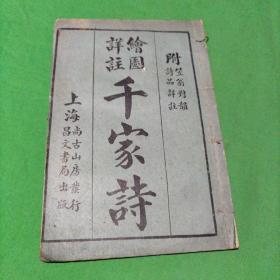 附
笠翁對韻
詩品詳註
繪圖
詳註
千家詩
上海
尚古山房發行
昌文書局出版